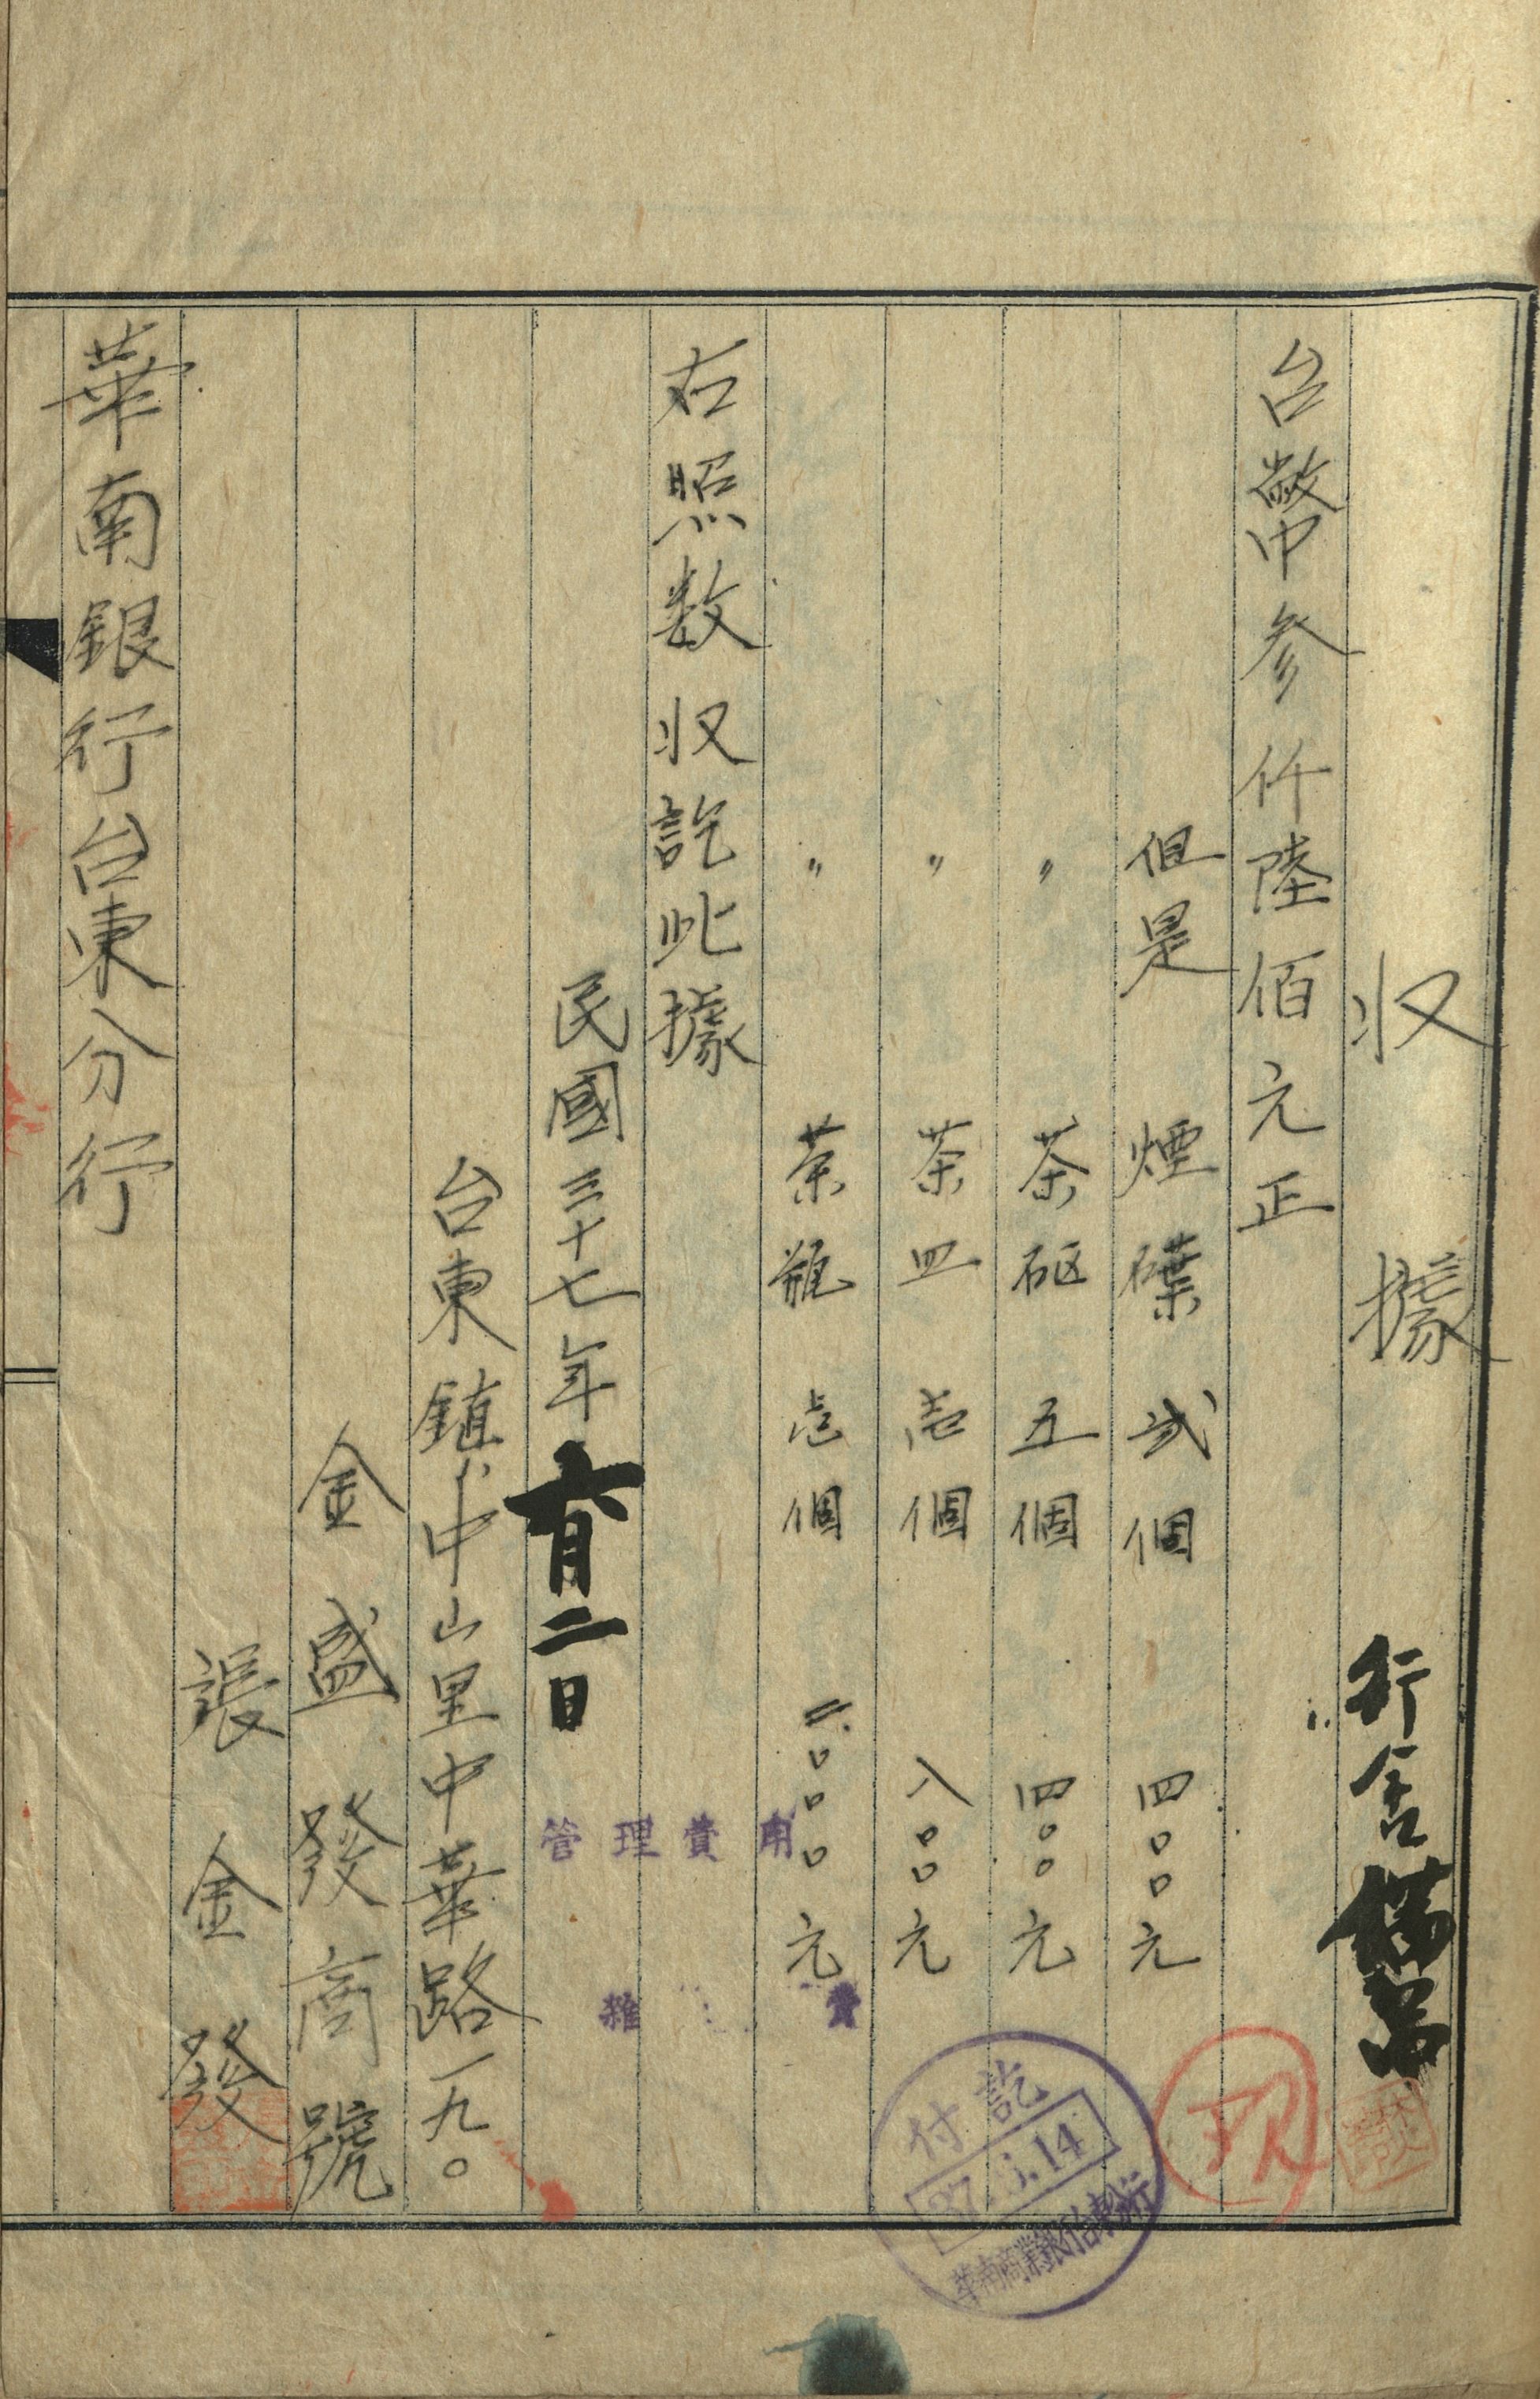 収據
行舍備品
台幣参仟陸佰元正
但是 煙碟 弍個 四〇〇元
〃 茶砙 五個 四〇〇元
〃 茶皿 壱個 八〇〇元
〃 茶瓶 壱個 二〇〇〇元
右照数収訖此據
民國三十七年六月二日
台東鎮中山里中華路一九〇
金盛發商號
張金發
華南銀行台東分行
管理費用
雜費
付訖
37. .14
華南商業銀行台東分行
現